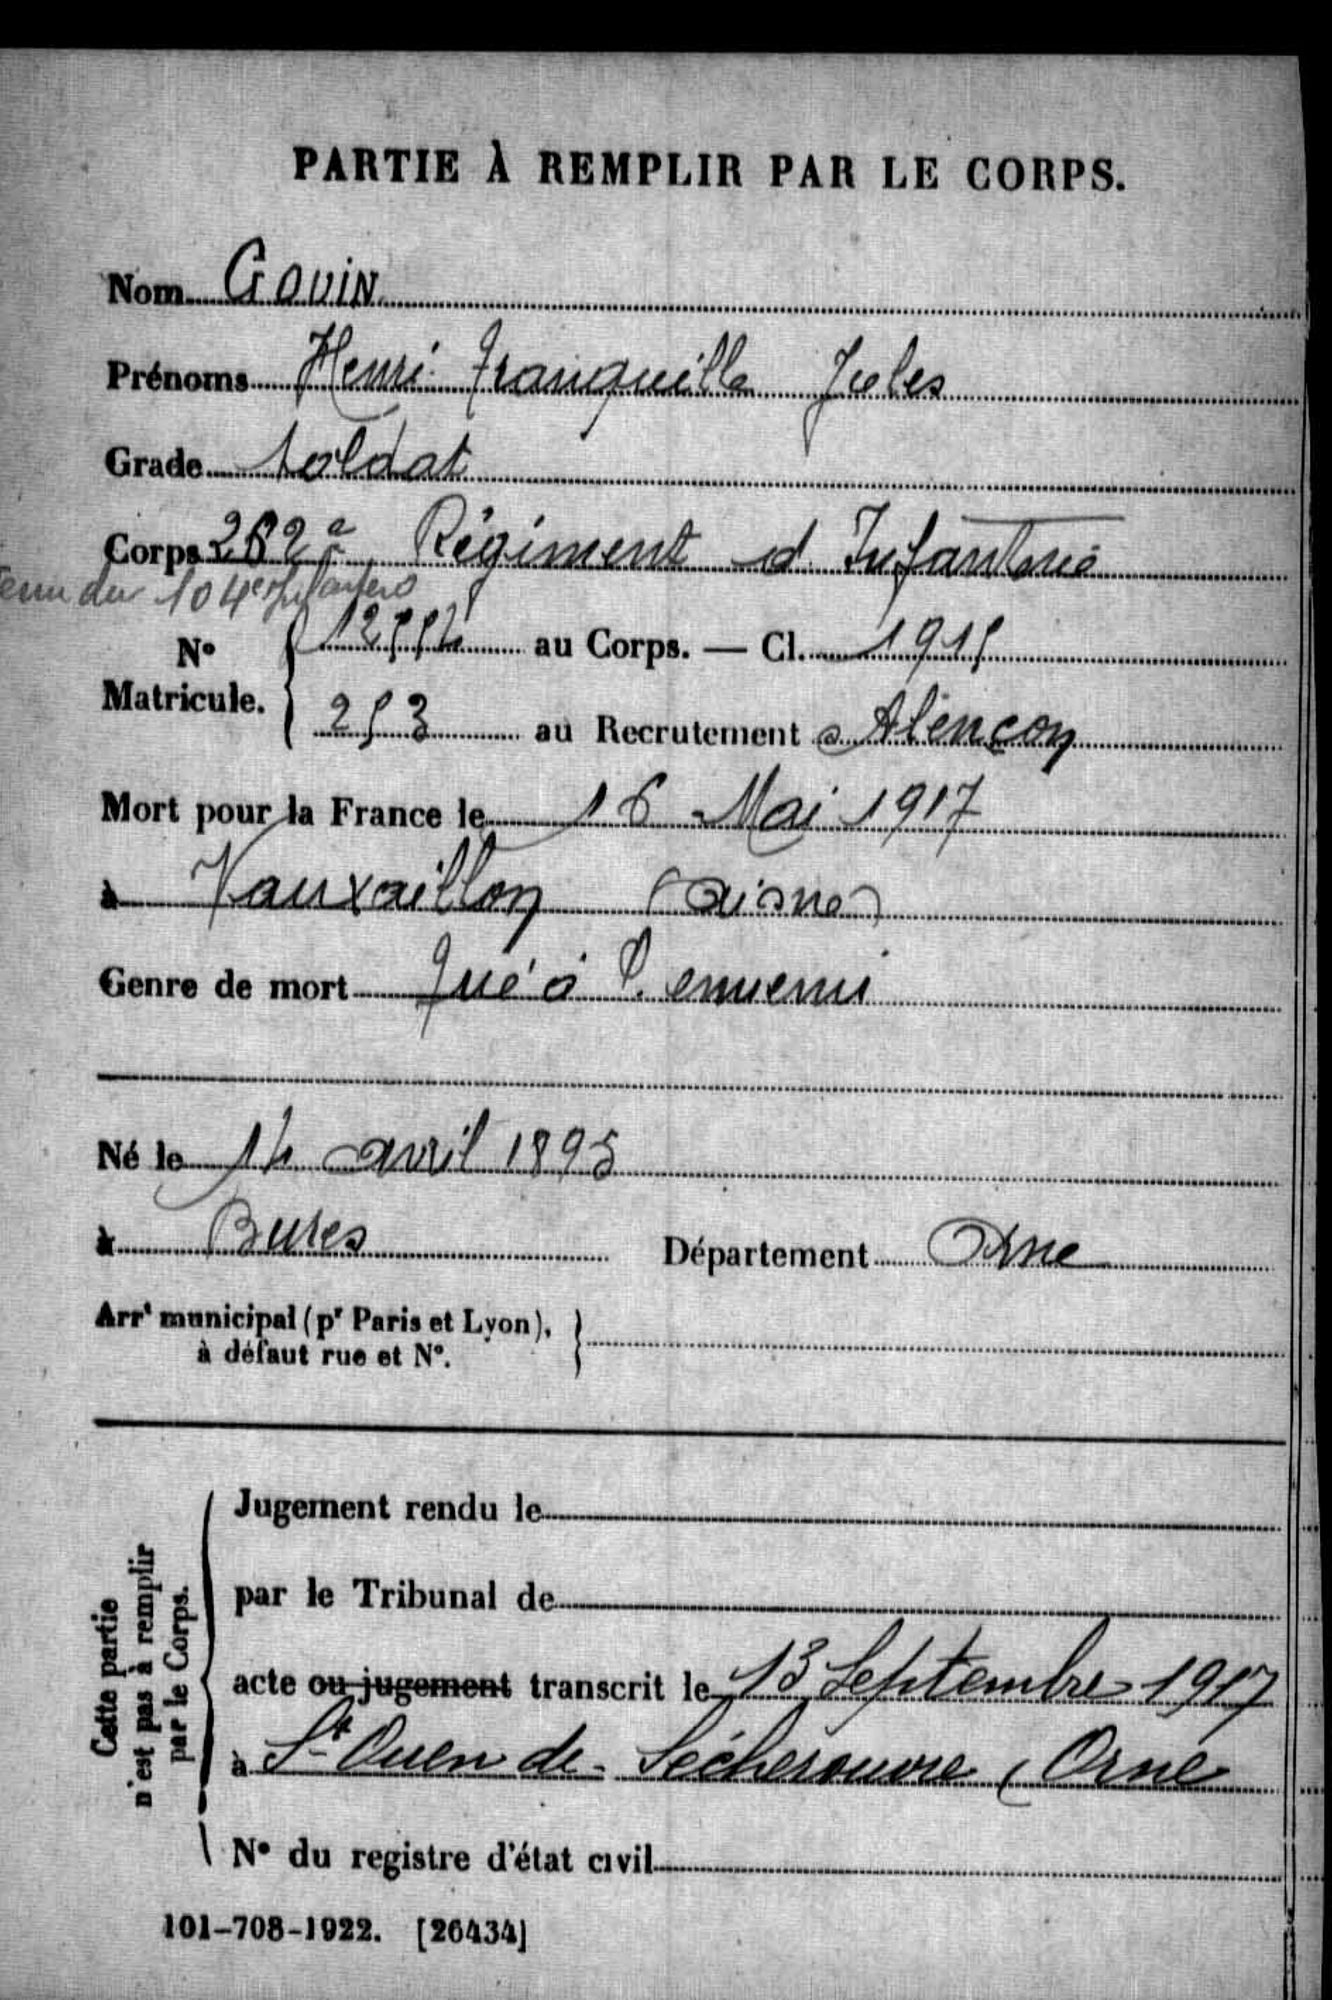 PARTIE À REMPLIR PAR LE CORPS.
Nom GOUIN
Prénoms Henri Tranquille Jules
Grade Soldat
Corps 262e Régiment d'Infanterie
du 104e
N° Matricule. au Corps. — Cl. 1915
253 au Recrutement Alençon
Mort pour la France le 16 Mai 1917
à Vauxaillon (Aisne)
Genre de mort Tué à l'ennemi
Né le 14 avril 1895
à Bures Département Orne
Arrt municipal (pr Paris et Lyon),
à défaut rue et N°.
Cette partie
n'est pas à remplir
par le Corps.
Jugement rendu le
par le Tribunal de
acte ou jugement transcrit le 13 Septembre 1917
à St Ouen de Sécherouvre (Orne
N° du registre d'état civil
101-708-1922. [26434]